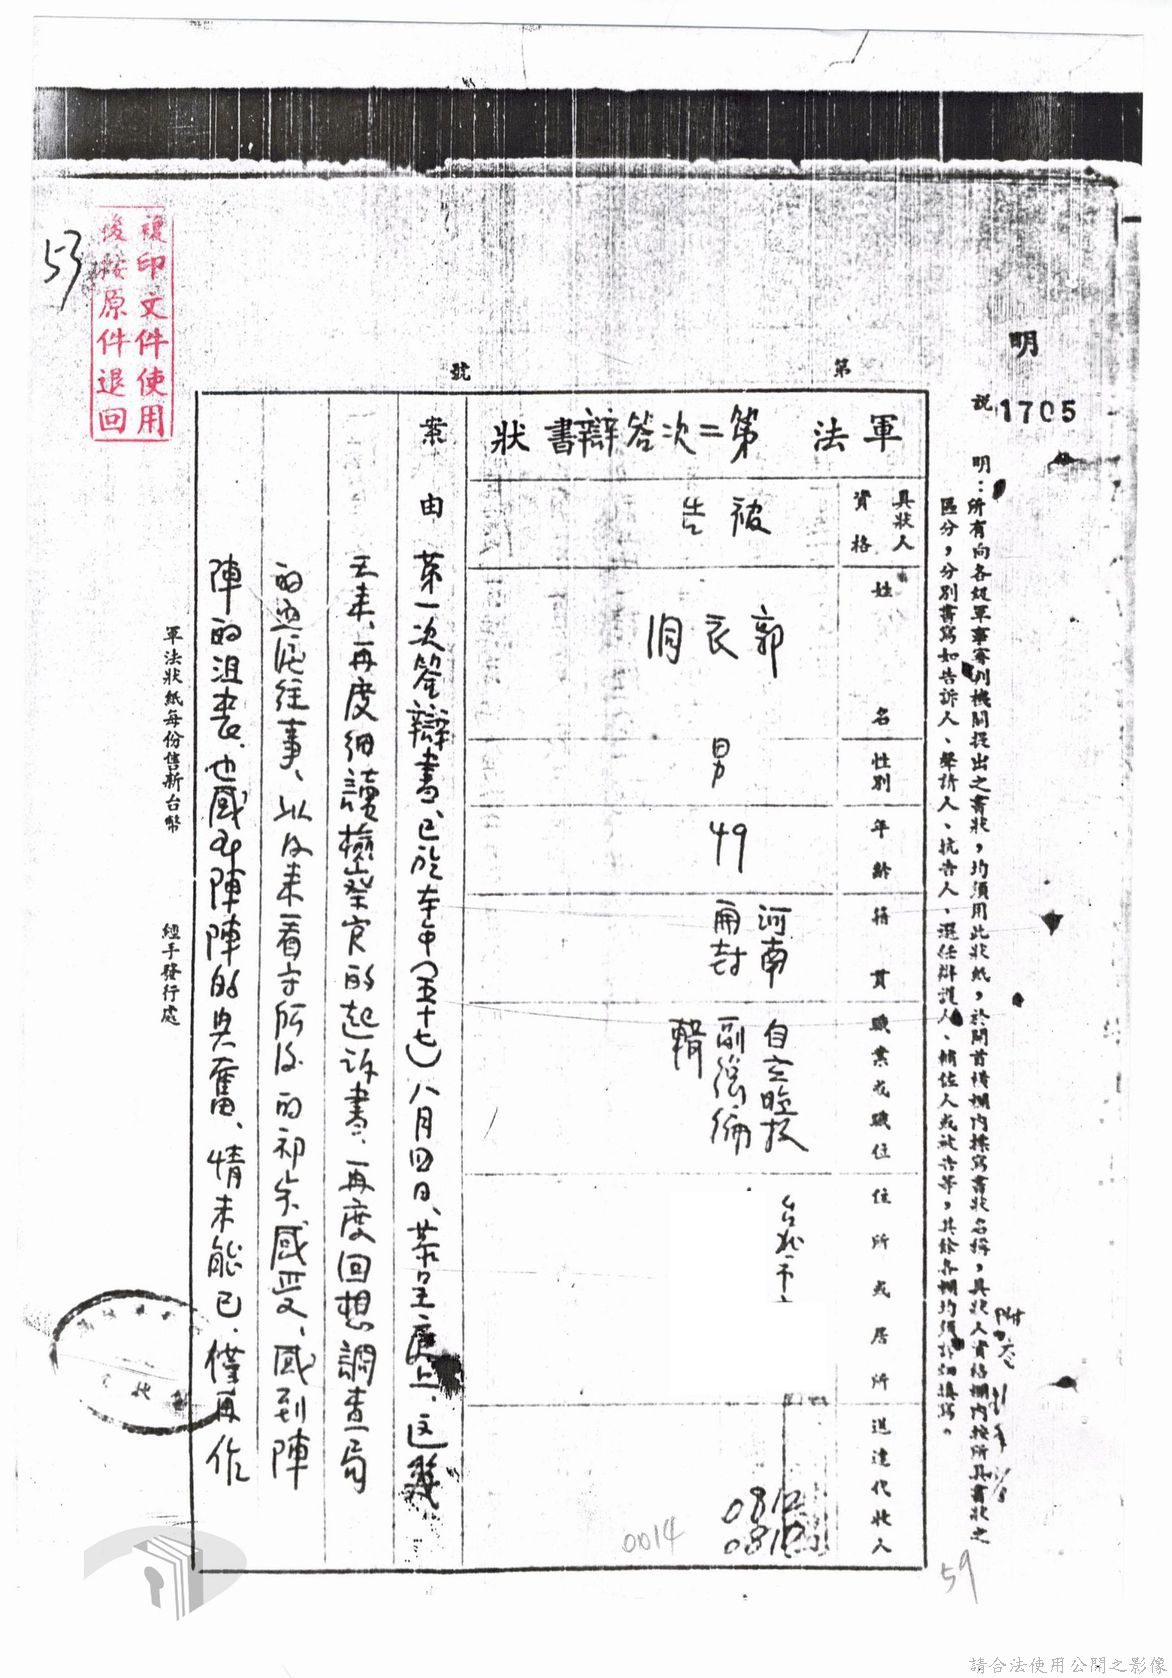 明
1705
第
號
說明：所有向各級軍事審判機關提出之書狀，均須用此狀紙，於開首橫欄內標寫書狀名稱，具狀人資格欄內按所具書狀之
區分，分別書寫如告訴人、聲請人、抗告人、選任辯護人、輔佐人或被告等，其餘各欄均須詳細填寫。
軍法 第二次答辯書狀
具狀人資格
被告
姓名
郭衣洞
性別
男
年齡
49
籍貫
河南
開封
職業或職位
自立晚報
副總編
輯
住所或居所
台北市
送達代收人
0812
0812
案由
第一次答辯書、已於本年(五十七)八月四日、恭呈庭上、這幾
天來、再度細讀檢察官的起訴書、再度回想調查局
的 往事、以及來看守所後的 感受、感到陣
陣的沮喪、也感到陣陣的興奮、情未能已、僅再作
軍法狀紙每份售新台幣
經手發行處
複印文件使用
後按原件退回
53
59
0014
請合法使用公開之影像